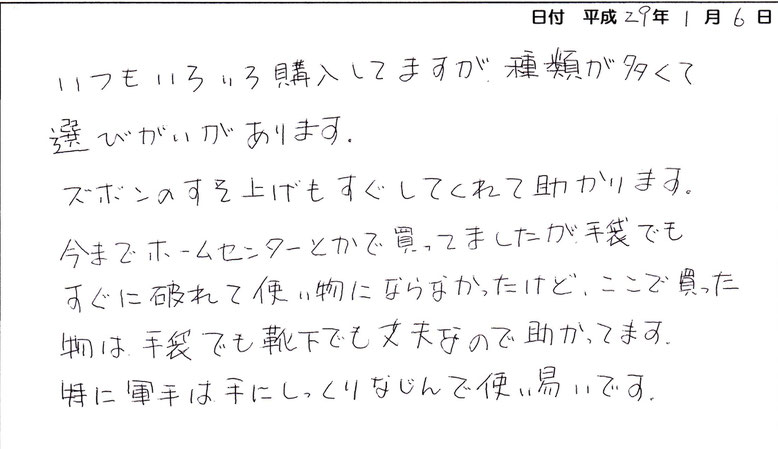 日付 平成29年1月6日
いつもいろいろ購入してますが、種類が多くて
選びがいがあります。
ズボンのすそ上げもすぐしてくれて助かります。
今までホームセンターとかで買ってましたが、手袋でも
すぐに破れて使い物にならなかったけど、ここで買った
物は、手袋でも靴下でも丈夫なので助かってます。
特に軍手は手にしっくりなじんで使い易いです。